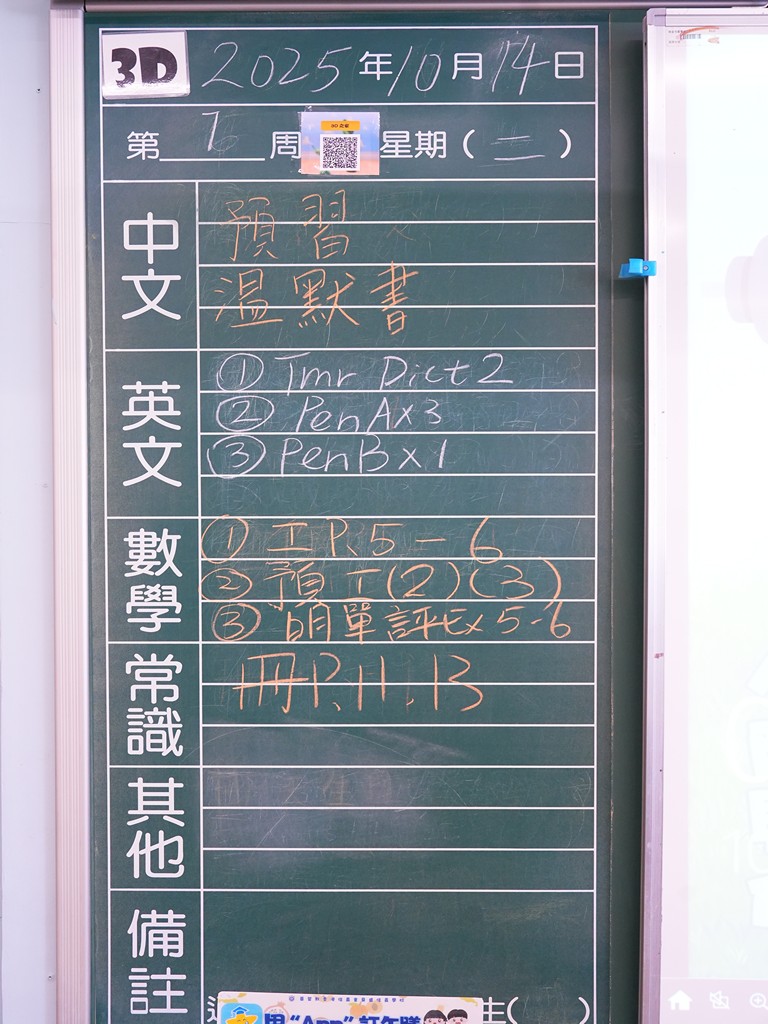 3D 2025年10月14日
第 周 星期(二)
中文
預習
溫默書
英文
① Tmr Dict 2
② Pen A x 3
③ Pen B x 1
數學
① 工 P.5 - 6
② 預工(2)(3)
③ 明單評Ex 5-6
常識
冊 P.11, 13
其他
備註
用"App"訂午膳
生( )